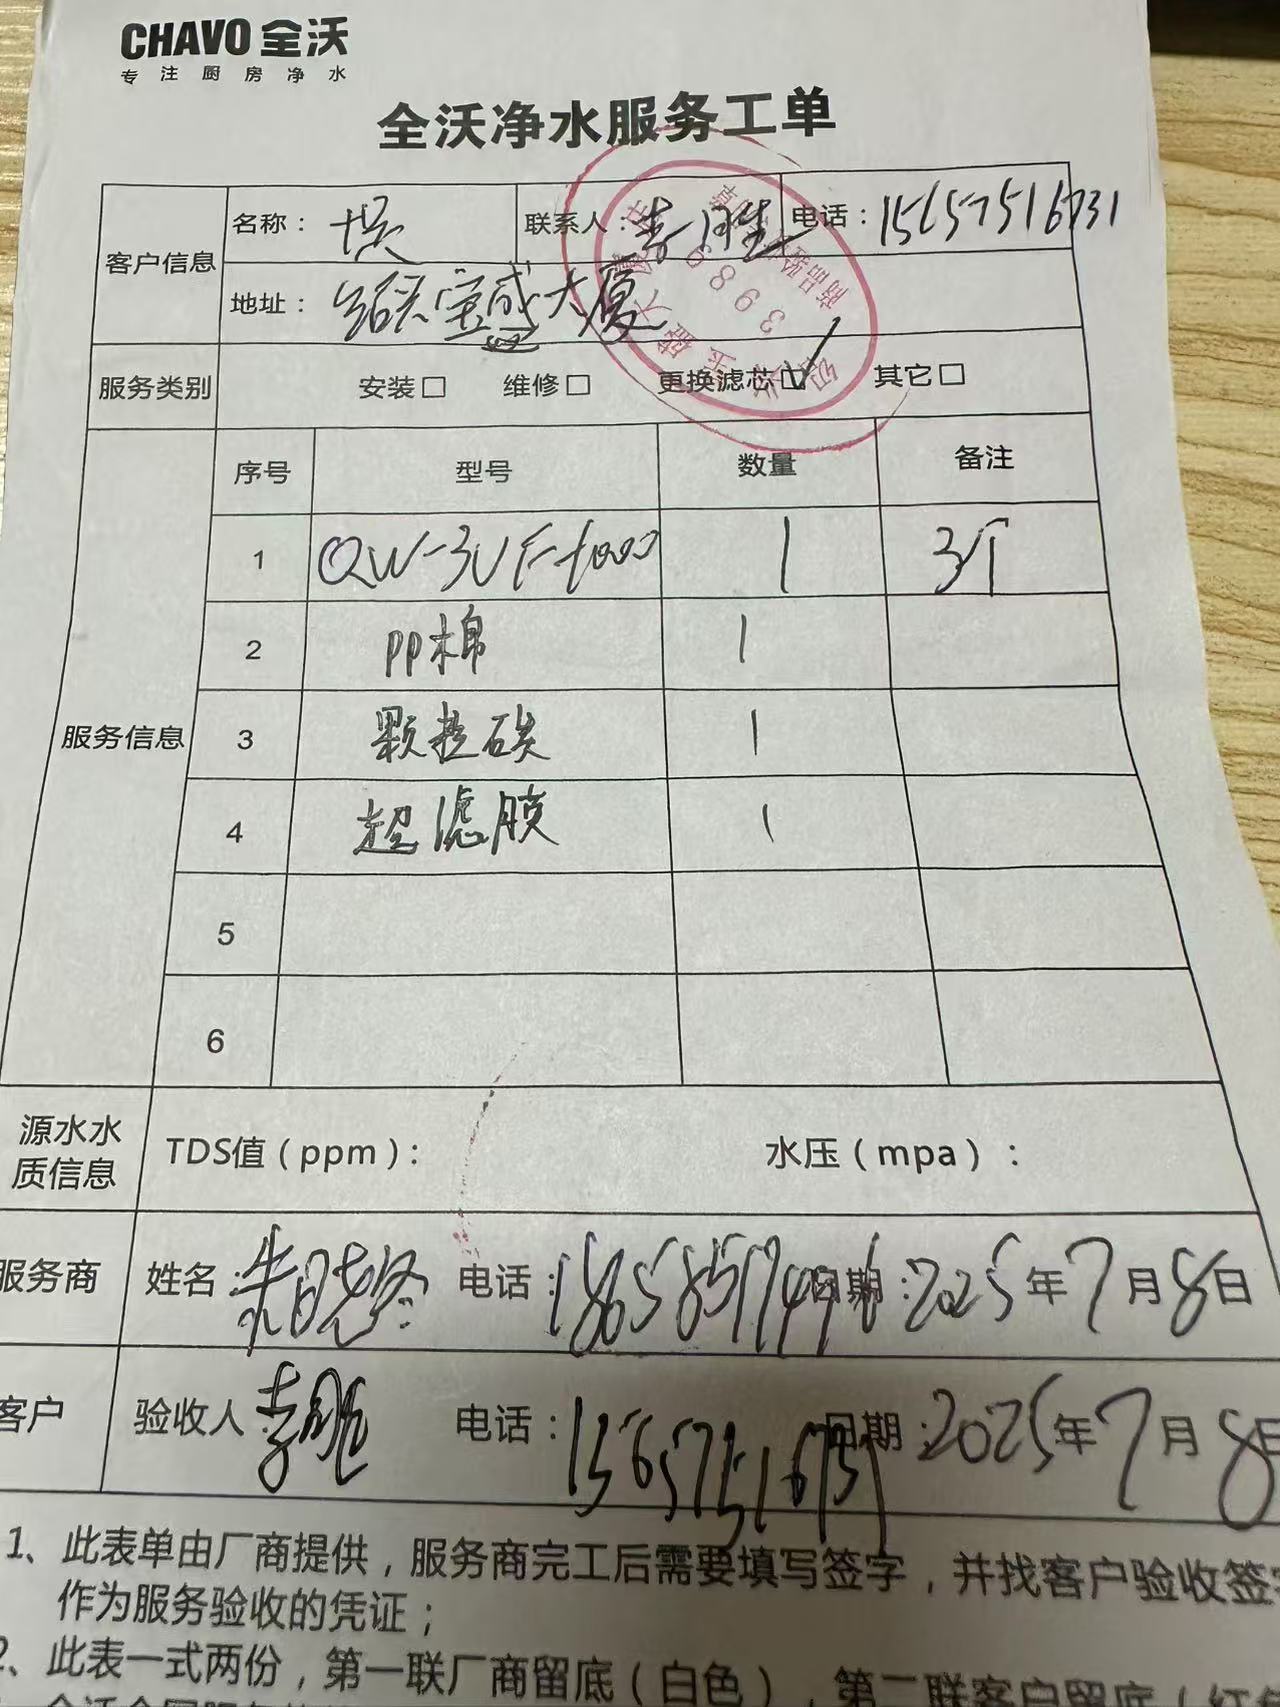 CHAVO 全沃
专注厨房净水
全沃净水服务工单
客户信息
名称： 联系人：李胜 电话：15657516731
地址：绍兴宝盛大厦
服务类别 安装□ 维修□ 更换滤芯☑ 其它□
服务信息
序号 型号 数量 备注
1 QW-3UF-1000 1 3个
2 pp棉 1
3 颗粒碳 1
4 超滤膜 1
5
6
源水水质信息 TDS值（ppm）： 水压（mpa）：
服务商 姓名：朱 电话：18658517496 日期：2025年7月8日
客户 验收人：李胜 电话：15657516731 日期：2025年7月8日
1、此表单由厂商提供，服务商完工后需要填写签字，并找客户验收签字
作为服务验收的凭证；
2、此表一式两份，第一联厂商留底（白色），第二联客户留底（红色